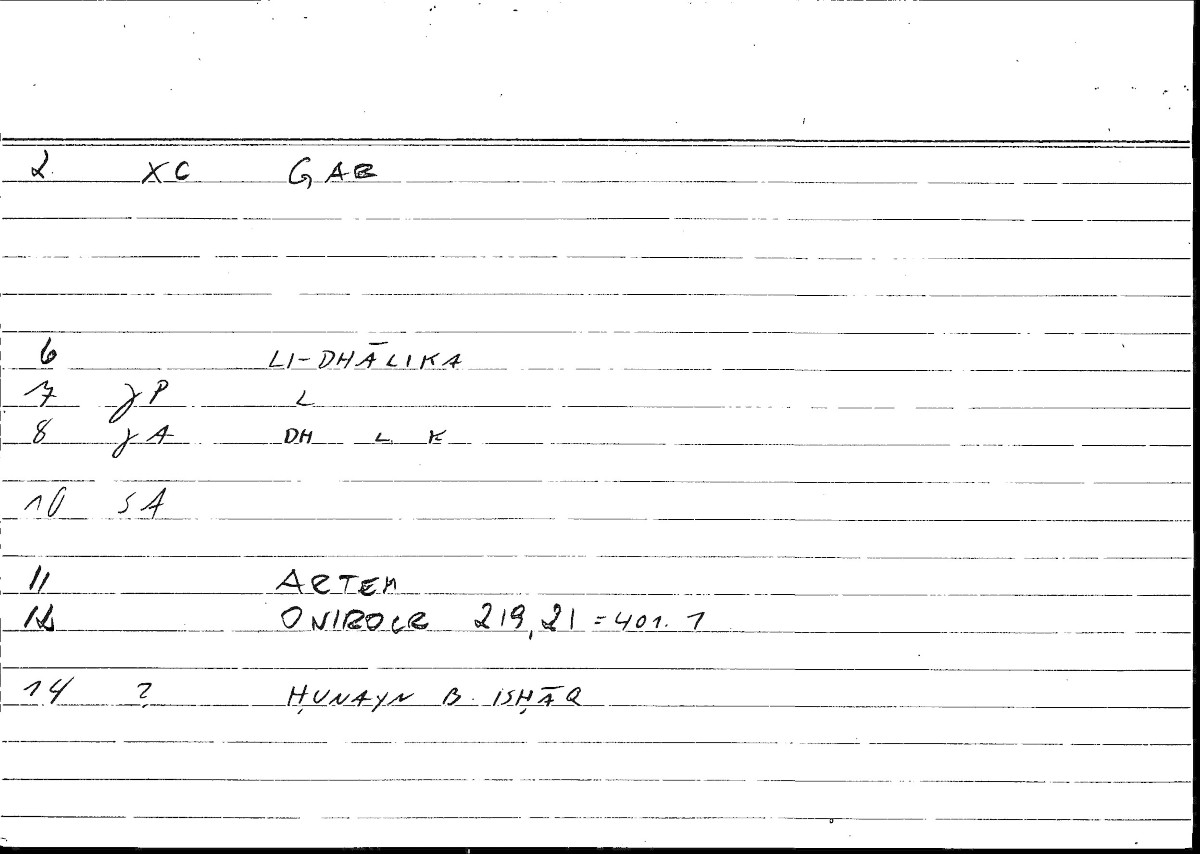 2 XC GAB
6 LI-DHĀLIKA
7 γP L
8 γA DH L K
10 SA
11 ARTEM
12 ONIROCR 219,21 = 401.1
14 ? ḤUNAYN B. ISḤĀQ